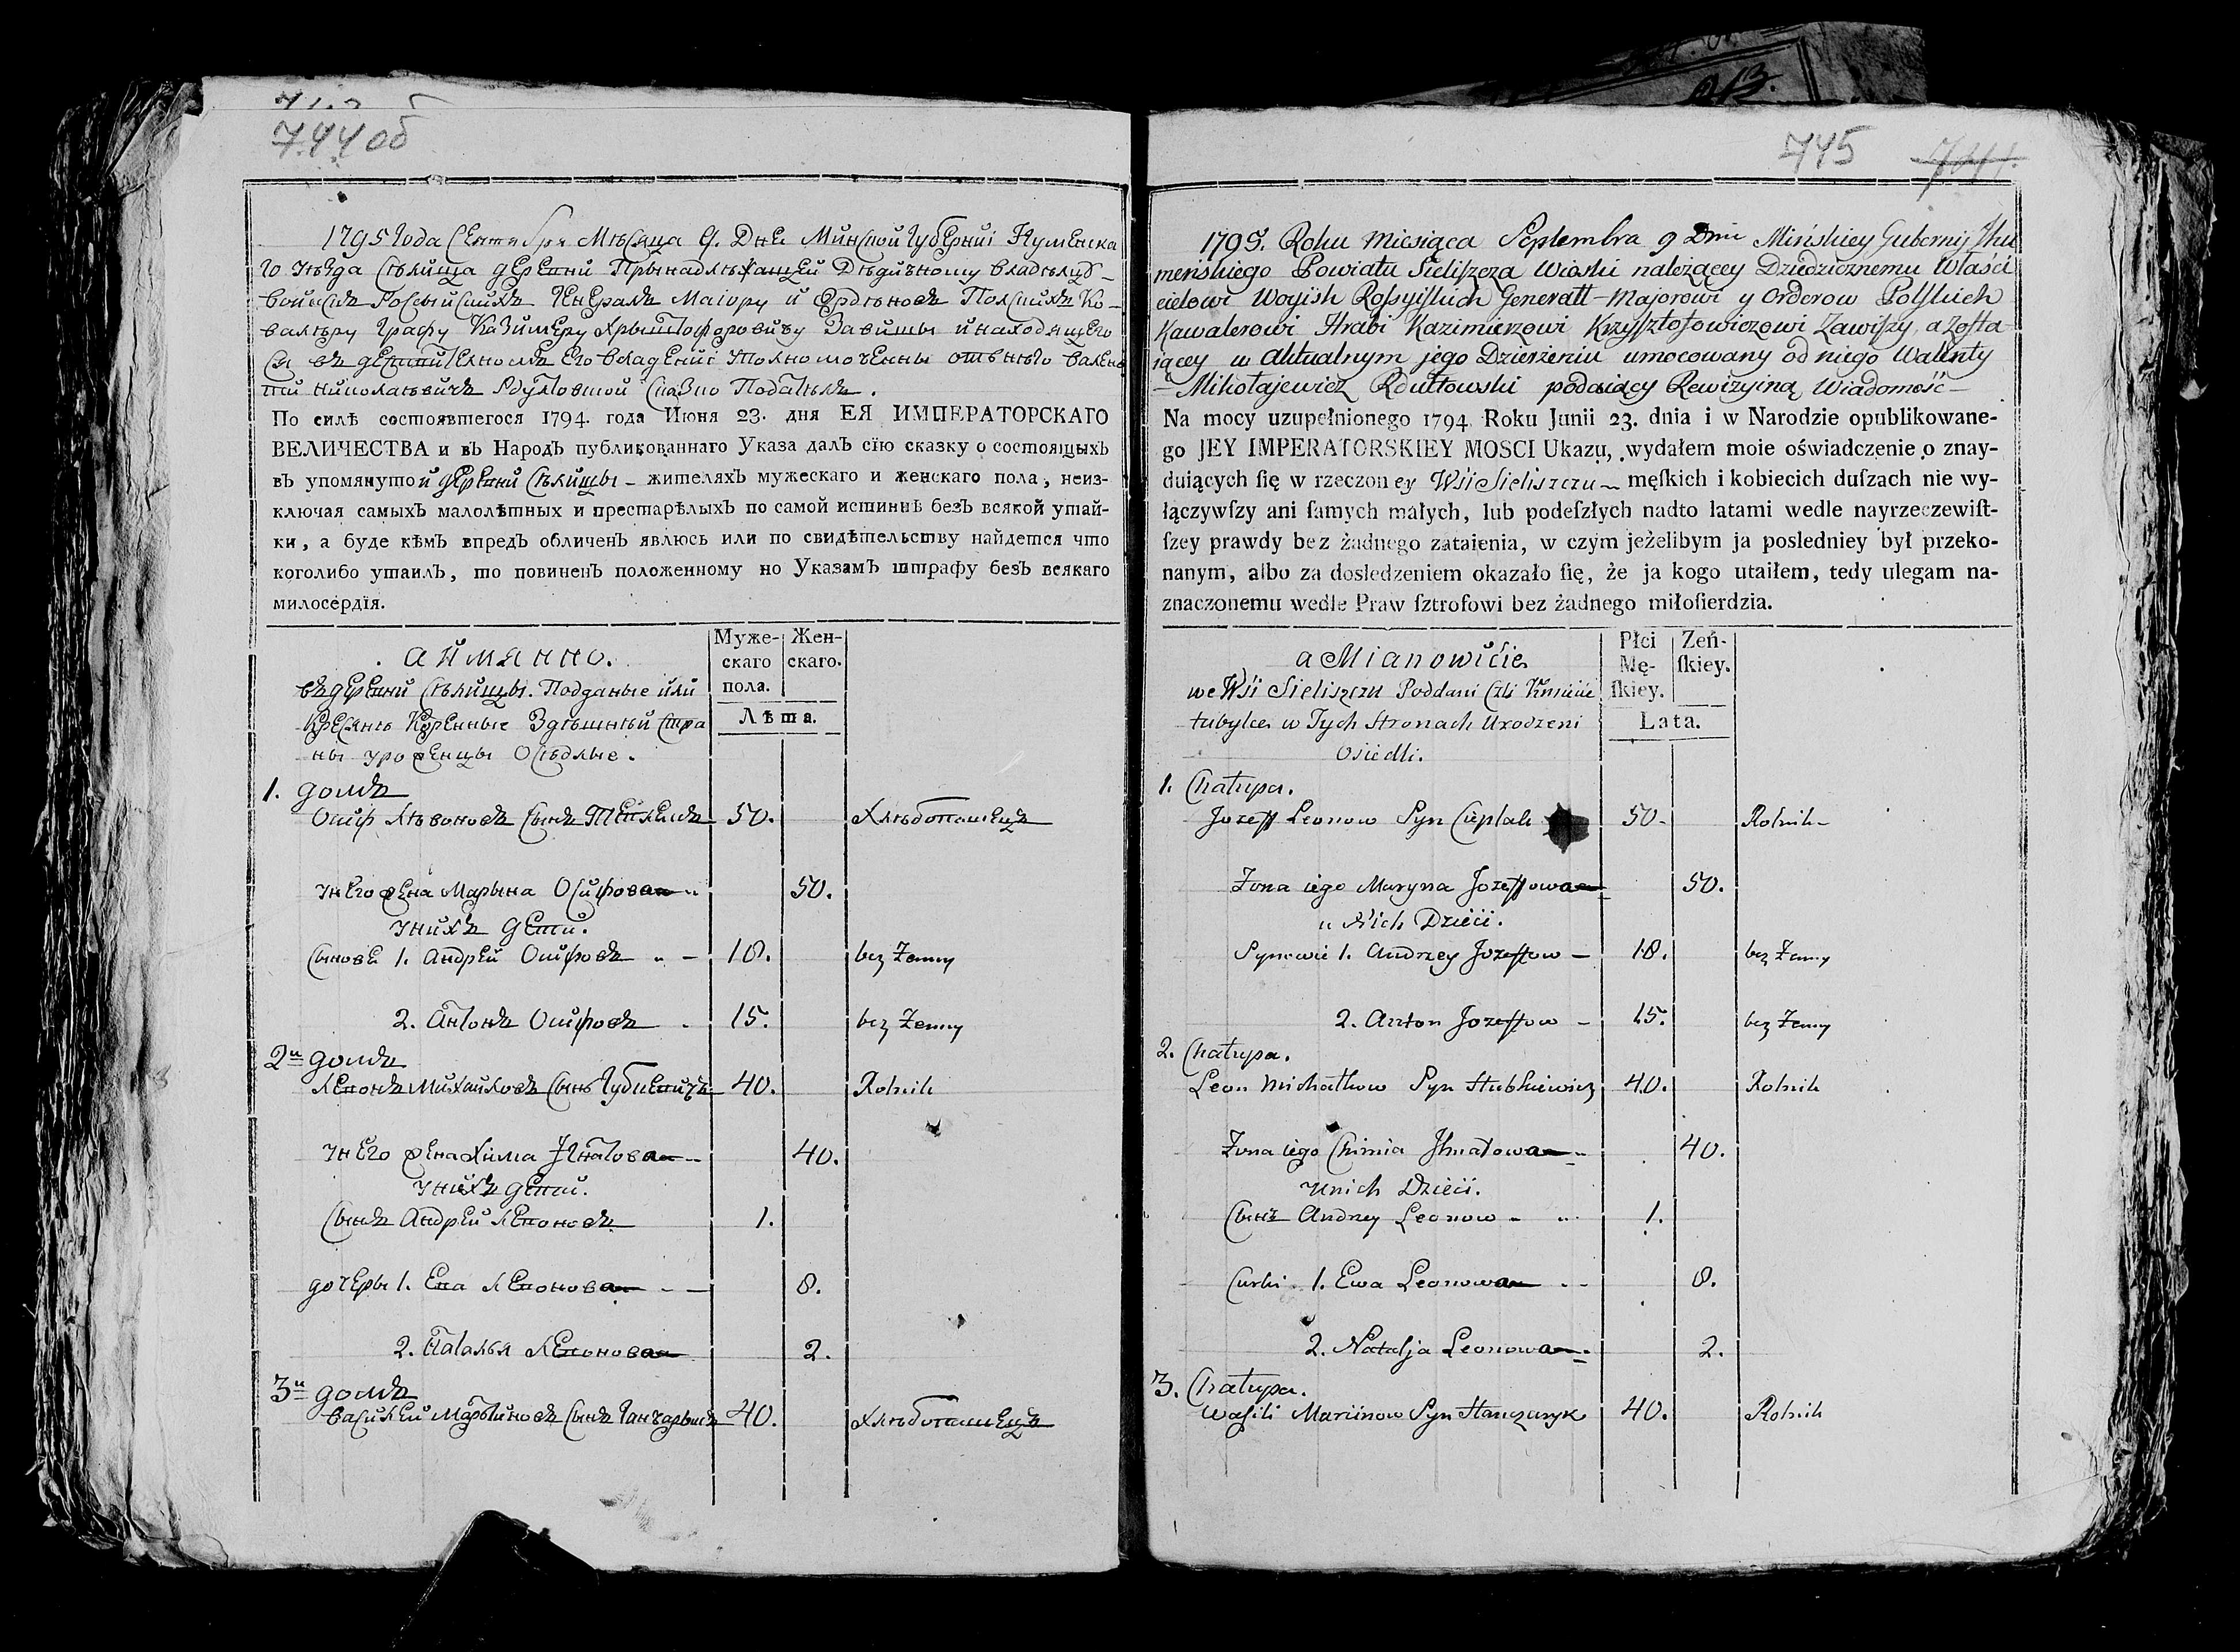 744 об
1795 Года Сентября Мѣсяца 9. Дне Минской Губерніі Игуменска
го уѣзда Сѣлища деревни Прынадлѣжащей Дѣдичному владѣлцу
войскъ Россыйскихъ Генералъ Маіору и Орденовъ Полскихъ Ка-
валѣру Графу Казимеру Хрыштофоровичу Завишы и находящего
ся въ Его владеніі Уполномоченны отънъго Вален
тий Николаевичъ Рдултовской Сказко Податель.
По силѣ состоявшегося 1794. года Июня 23. дня ЕЯ ИМПЕРАТОРСКАГО
ВЕЛИЧЕСТВА и въ Народъ публикованнаго Указа далъ сїю сказку о состоящыхъ
въ упомянутой деревни Сѣлищы - жителяхъ мужескаго и женскаго пола, неиз-
ключая самыхъ малолѣтныхъ и престарѣлыхъ по самой истиннѣ безъ всякой утай-
ки, а буде кѣмъ впредъ обличенъ явлюсь или по свидѣтельству найдется что
коголибо утаилъ, то повиненъ положенному по Указамъ штрафу безъ всякаго
милосердїя.
аймянно.
Муже-
скаго
пола.
Жен-
скаго.
въ деревни Сѣлищы. Подданые или
Кресянѣ Коренные Здѣшнѣй Стра
ны уроженцы Осѣдлые.
Лѣта.
1. домъ
Осиф Лѣвоновъ Сынъ 50. Хлѣбопашецъ
унего жена Марына Осифовая 50.
унихъ дети.
Сынове 1. Андрей Осифовъ - 18. bez Zenny
2. Антонъ Осифовъ 15. bez Zenny
2й домъ
Левонъ Михайловъ Сынъ Губкевичъ 40. Rolnik
унего жена Химa Ігнатовая 40.
унихъ дети.
Сынъ Андрей Левоновъ 1.
дочеры 1. Ева Левоновая - 8.
2. Наталья Левоновая 2.
3й домъ
Василей Мартыновъ Сынъ Ганчарыкъ 40. Хлѣбопашецъ
745 744.
1795. Roku Miesiąca Septembra 9 Dnia Mińskiey Gubernij Ihu
meńskiego Powiatu Sieliszcza Wioski należącey Dziedzicznemu Właści
cielowi Woysk Rossyiskich Generałl-Majorowi y Orderow Polskich
Kawalerowi Hrabi Kazimierzowi Krzysztofowiczowi Zawiszy, a zosta
iącey w aktualnym jego Dzierżeniu umocowany od niego Walenty
Mikołajewicz Rdułtowski podaiący Rewizyiną Wiadomość
Na mocy uzupełnionego 1794. Roku Junii 23. dnia i w Narodzie opublikowane-
go JEY IMPERATORSKIEY MOSCI Ukazu, wydałem moie oświadczenie o znay-
duiących się w rzeczoney Wsi Sieliszczu męskich i kobiecich duszach nie wy-
łączywszy ani samych małych, lub podeszłych nadto latami wedle nayrzeczewist-
szey prawdy bez żadnego zataienia, w czym jeżelibym ja posledniey był przeko-
nanym, albo za dosledzeniem okazało się, że ja kogo utaiłem, tedy ulegam na-
znaczonemu wedle Praw sztrofowi bez żadnego miłosierdzia.
a Mianowicie
Płci
Mę-
skiey.
Zeń-
skiey.
we Wsi Sieliszczu Poddani Czli Kmiecie
tubylce w Tych Stronach Urodzeni
Osiedli.
Lata.
1. Chałupa.
Jozeff Leonow Syn Cieplak 50. Rolnik
Zona iego Maryna Jozeffowa 50.
u Nich Dzieci.
Synowie 1. Andrzey Jozeffow - 18. bez Zenny
2. Anton Jozeffow - 15. bez Zenny
2. Chałupa.
Leon Michałkow Syn Hubkiewicz 40. Rolnik
Zona iego Chimia Ihnatowa 40.
Unich Dzieci.
Сынъ Andrzey Leonow 1.
Curki 1. Ewa Leonowa 8.
2. Natalja Leonowa 2.
3. Chałupa.
Wasili Marcinow Syn Hanczaryk 40. Rolnik